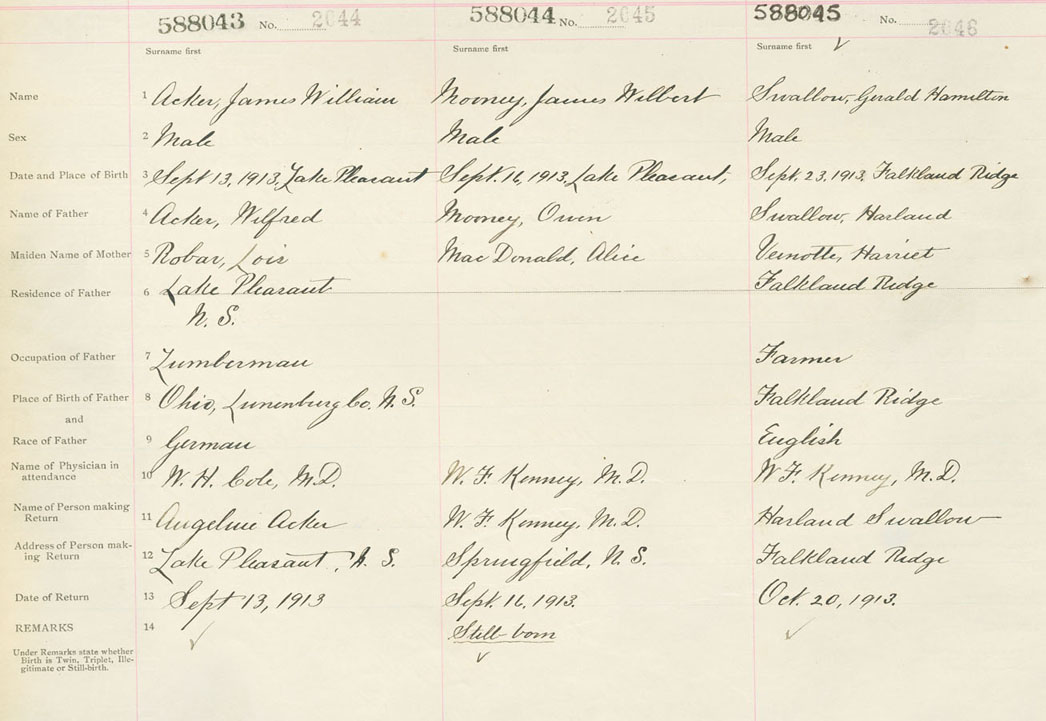 588043 No. 2044 588044 No. 2045 588045 No. 2046
Surname first Surname first Surname first
Name 1 Acker, James William Mooney, James Wilbert Swallow, Gerald Hamilton
Sex 2 Male Male Male
Date and Place of Birth 3 Sept 13, 1913, Lake Pleasant Sept. 16, 1913, Lake Pleasant, Sept. 23, 1913, Falkland Ridge
Name of Father 4 Acker, Wilfred Mooney, Owen Swallow, Harland
Maiden Name of Mother 5 Robar, Lois Mac Donald, Alice Vernotte, Harriet
Residence of Father 6 Lake Pleasant Falkland Ridge
N. S.
Occupation of Father 7 Lumberman Farmer
Place of Birth of Father 8 Ohio, Lunenburg Co. N. S. Falkland Ridge
and
Race of Father 9 German English
Name of Physician in
attendance 10 W. H. Cole, M.D. W. F. Kenney, M.D. W F. Kenney, M.D.
Name of Person making
Return 11 Angeline Acker W. F. Kenney, M.D. Harland Swallow
Address of Person mak-
ing Return 12 Lake Pleasant, N. S. Springfield, N. S. Falkland Ridge
Date of Return 13 Sept 13, 1913 Sept. 16, 1913. Oct. 20, 1913.
REMARKS 14 Still-born
Under Remarks state whether
Birth is Twin, Triplet, Ille-
gitimate or Still-birth.